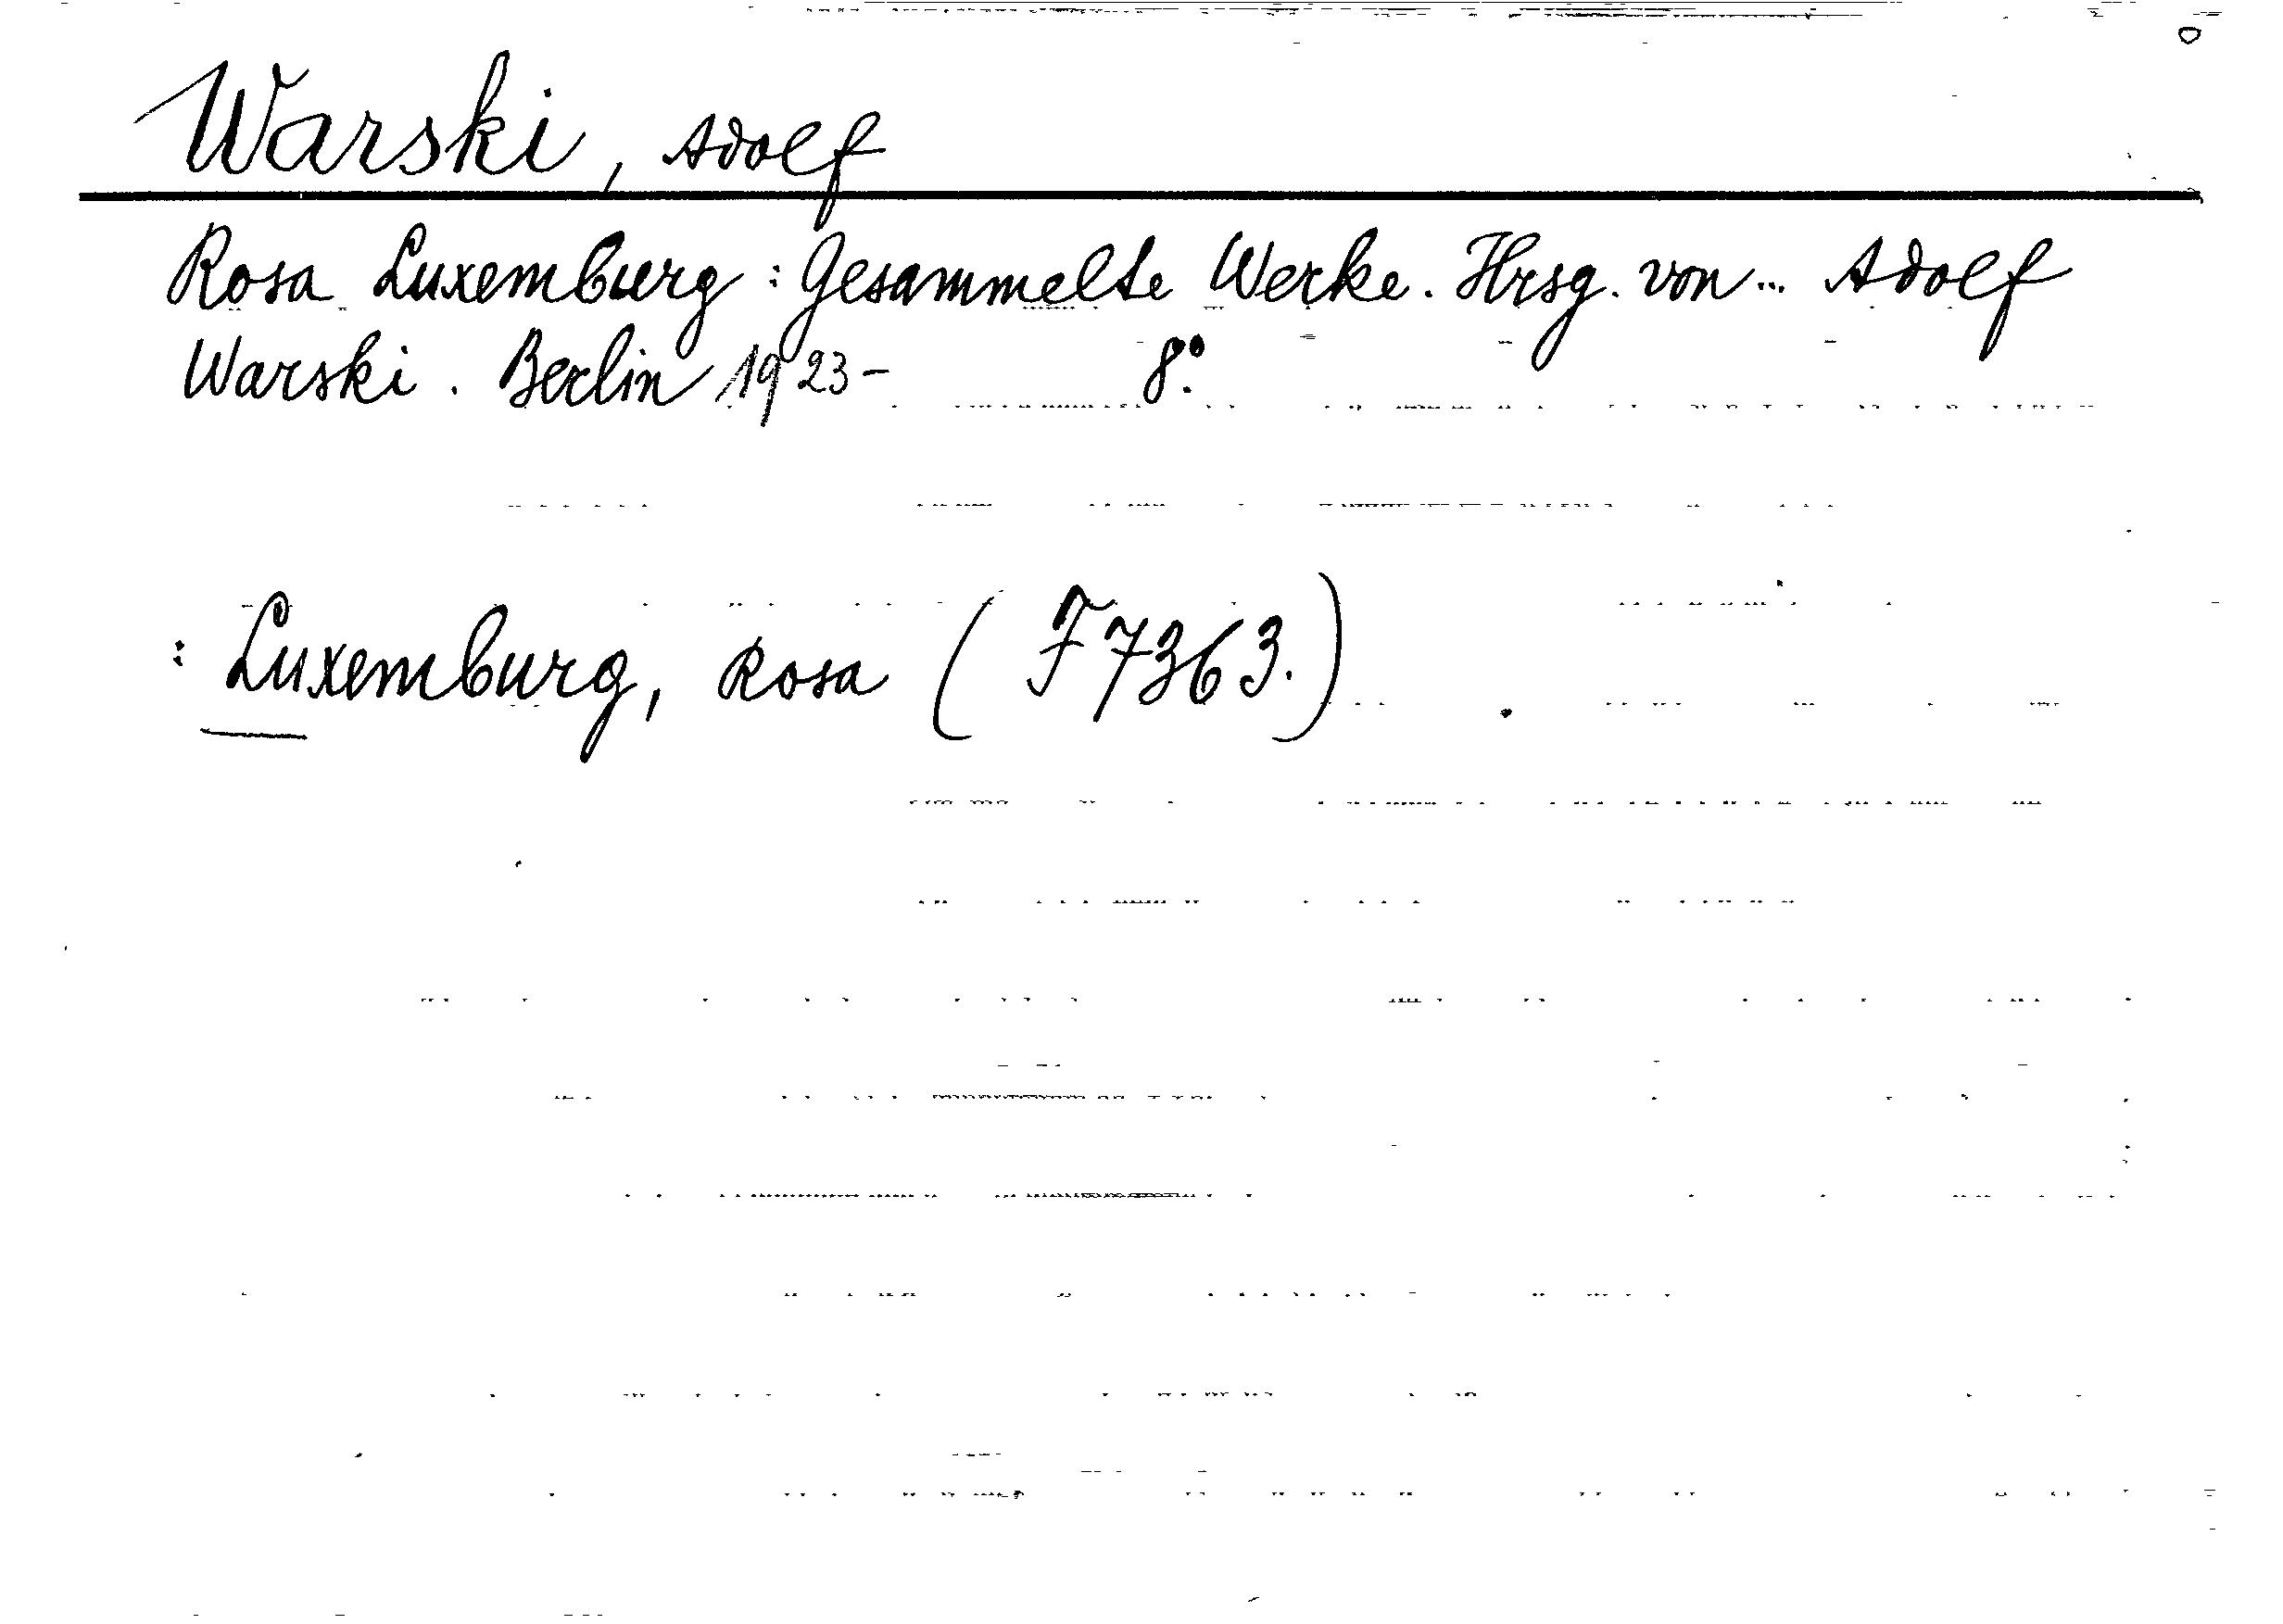 Warski, Adolf
Rosa Luxemburg: Gesammelte Werke. Hrsg. von... Adolf
Warski. Berlin 1923- 8°.
: Luxemburg, Rosa (F 7363.)